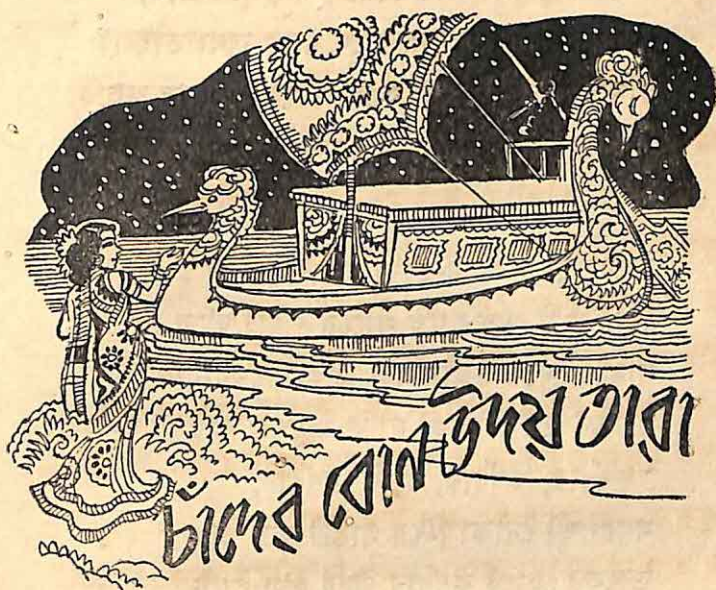 চাঁদের বোন উদয় তারা